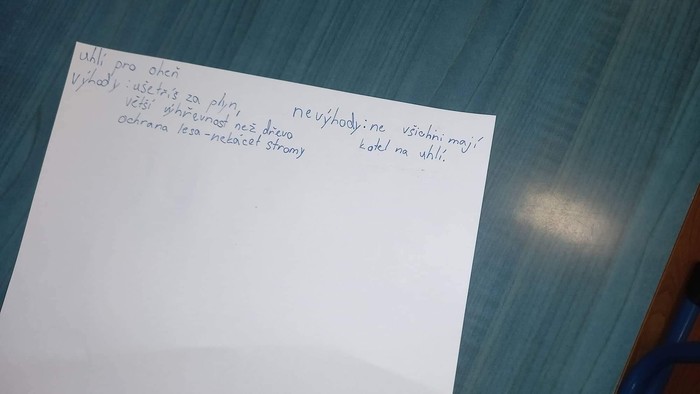 uhlí pro oheň
Výhody: ušetříš za plyn,
větší výhřevnost než dřevo
ochrana lesa-nekácet stromy
nevýhody: ne všichni mají
kotel na uhlí.